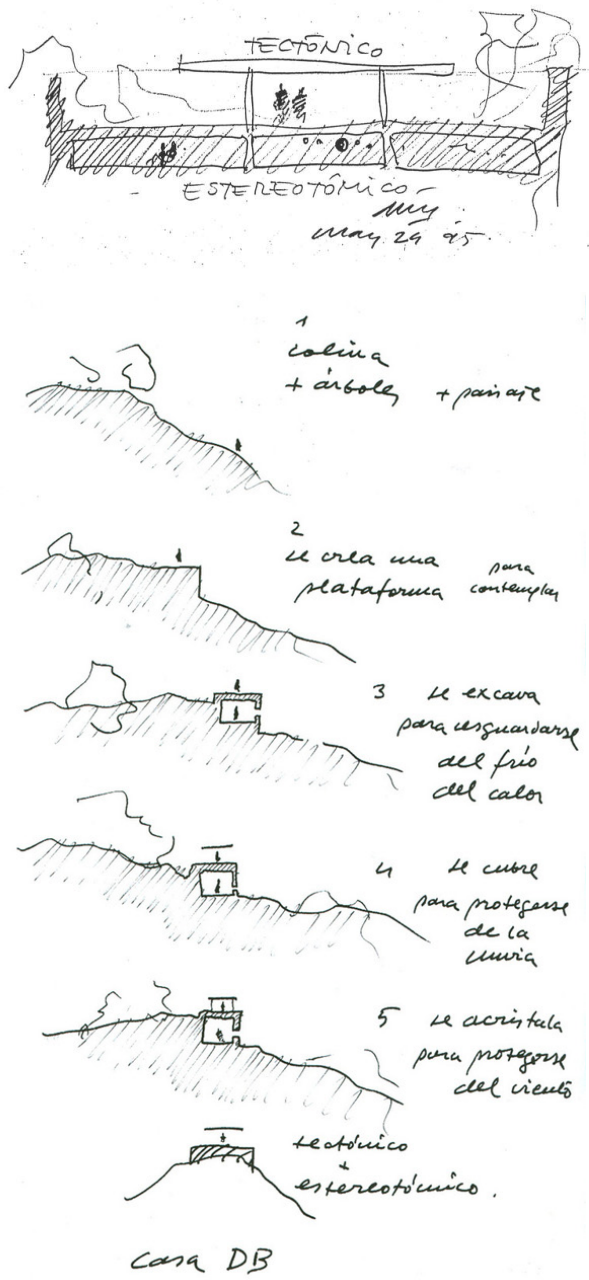 TECTÓNICO
ESTEREOTÓMICO
May 29 95.
1
colina
+ árboles + paisaje
2
se crea una para
plataforma contemplar
3 se excava
para resguardarse
del frío
del calor
4 se cubre
para protegerse
de la
lluvia
5 se acristala
para protegerse
del viento
tectónico
+
estereotómico.
Casa DB